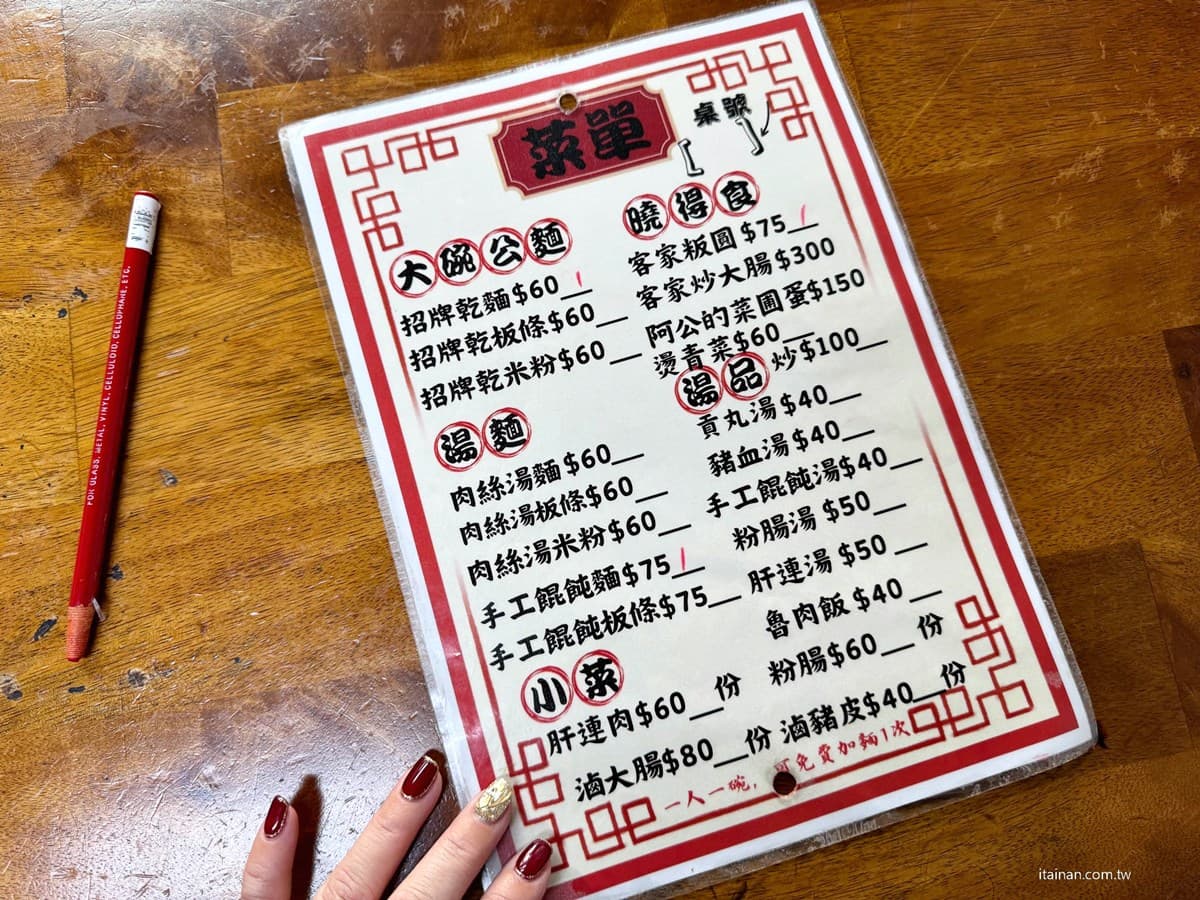 菜單
桌號
[ ]
大碗公麵
招牌乾麵$60__
招牌乾板條$60__
招牌乾米粉$60__
湯麵
肉絲湯麵$60__
肉絲湯板條$60__
肉絲湯米粉$60__
手工餛飩麵$75__
手工餛飩板條$75__
小菜
肝連肉$60__份
滷大腸$80__份
曉得食
客家粄圓$75__
客家炒大腸$300
阿公的菜圃蛋$150
燙青菜$60__
炒$100__
湯品
貢丸湯$40__
豬血湯$40__
手工餛飩湯$40__
粉腸湯$50__
肝連湯$50__
魯肉飯$40__
粉腸$60__份
滷豬皮$40__份
一人一碗，可免費加麵1次
FOR GLASS, METAL, VINYL, CELLULOID, CELLOPHANE, ETC.
itainan.com.tw